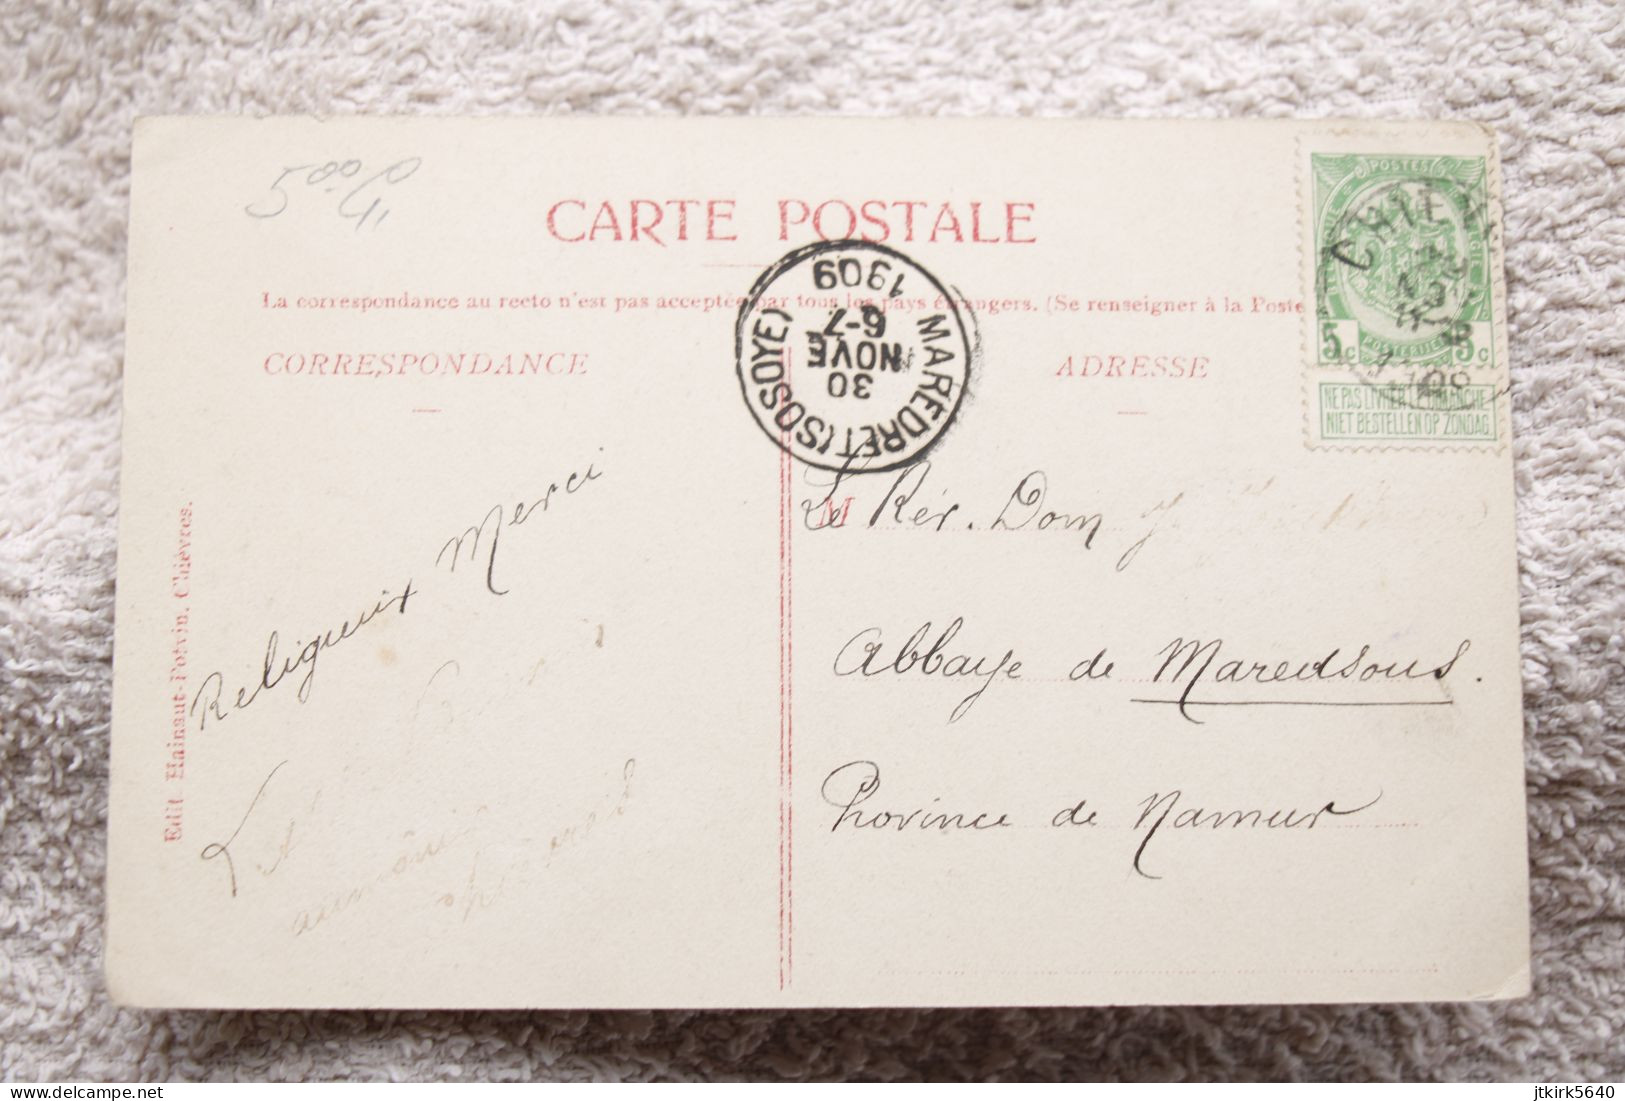 5.00
CARTE POSTALE
La correspondance au recto n'est pas acceptée par tous les pays étrangers. (Se renseigner à la Poste
CORRESPONDANCE
ADRESSE
POSTES
5 c
POSTERIJEN
5 c
NE PAS LIVRER LE DIMANCHE
NIET BESTELLEN OP ZONDAG
MAREDRET (SOSOYE)
30
NOVE
6-7
1909
Religieux Merci
M
Le Rév. Dom
Abbaye de Maredsous.
Province de Namur
Edit. Hainaut-Potvin, Chièvres.
delcampe.net
jtkirk5640